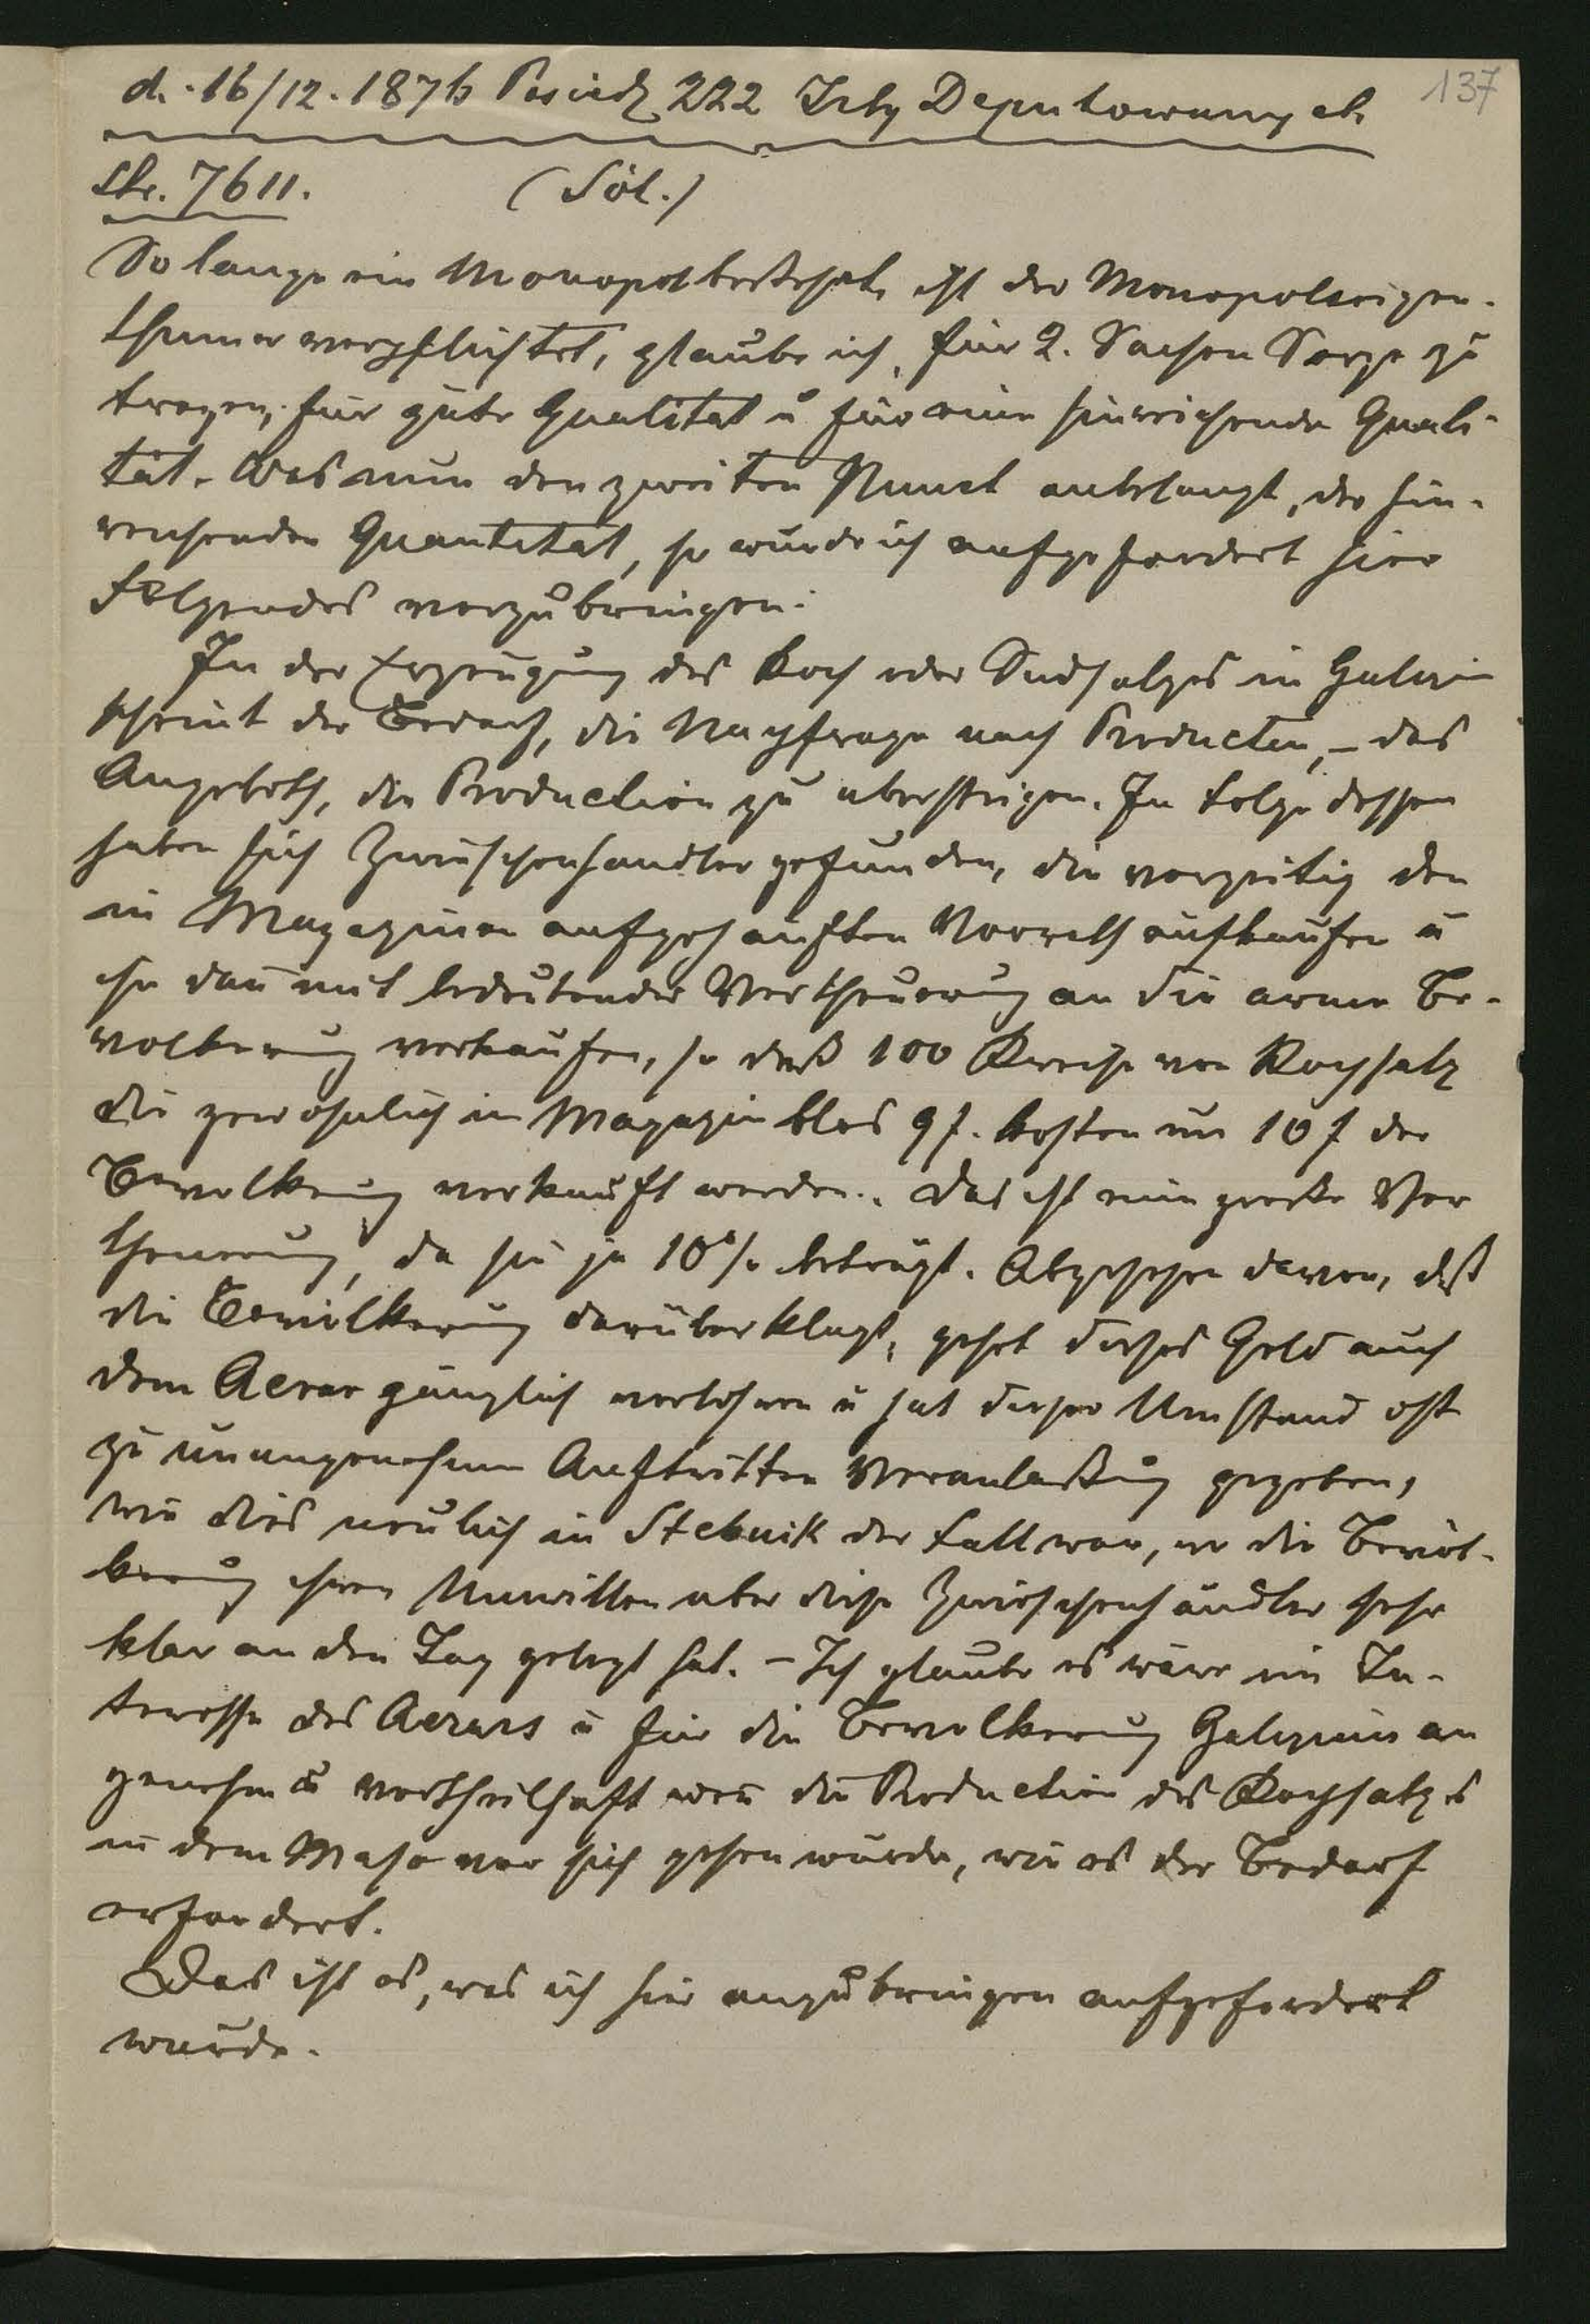 137
d. 16/12. 1876 Posiedz 222 Izby Deputowanych
str. 7611. (Sól.)
So lange ein Monopol besteht, ist der Monopolseigen-
thümer verpflichtet, glaube ich, für 2. Sachen Sorge zu
tragen, für gute Qualität u für eine hinreichende Quali-
tät. Was nun den zweiten Punct anbelangt, der hin-
reichenden Quantität, so wurde ich aufgefordert hier
Folgendes vorzubringen:
In der Erzeugung des Koch oder Sudsalzes in Galizien
scheint der Bedarf, die Nachfrage nach Producten, – das
Angeboth, die Production zu übersteigen. In Folge dessen
haben sich Zwischenhändler gefunden, die vorzeitig den
in Magazinen aufgehäuften Vorrath aufkaufen u
ihn dañ mit bedeutender Vertheuerung an die arme Be-
völkerung verkaufen, so daß 100 von Kochsalz
die gewöhnlich im Magazin blos 9 f. kosten um 10 f der
Bevölkerung verkauft werden. Das ist eine große Ver
theuerung, da sie ja 10% beträgt. Abgesehen davon, daß
die Bevölkerung darüber klagt, gehet dieses Geld auch
dem Aerar gänzlich verlohren u hat dieser Umstand oft
zu unangenehmen Auftritten Veranlaßung gegeben,
wie dies neulich in Stebnik der Fall war, wo die Bevöl-
kerung ihren Unwillen über diese Zwischenhändler sehr
klar an den Tag gelegt hat. – Ich glaube es wäre im In-
teresse des Aerars u für die Bevölkerung Galiziens an
genehm u vortheilhaft weñ die Production des Kochsalzes
in dem Maße vor sich gehen würde, wie es der Bedarf
erfordert.
Das ist es, was ich hier anzubringen aufgefordert
wurde.